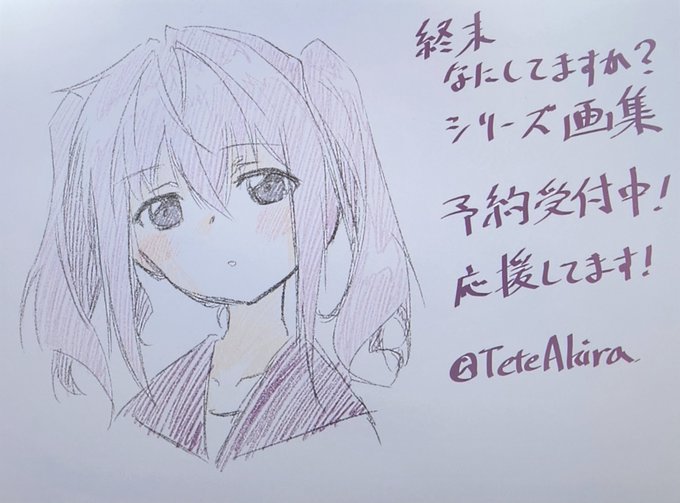 終末
なにしてますか?
シリーズ画集
予約受付中!
応援してます!
@TeteAkira